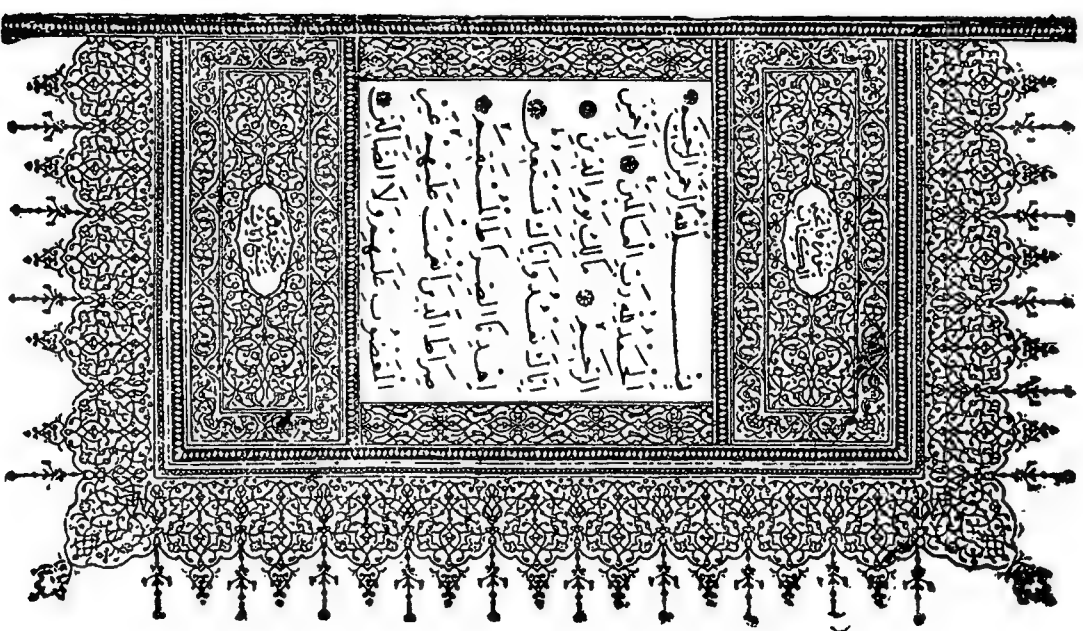 سورة فاتحة الكتاب
بِسْمِ اللَّهِ الرَّحْمَنِ الرَّحِيمِ
الْحَمْدُ لِلَّهِ رَبِّ الْعَالَمِينَ الرَّحْمَنِ
الرَّحِيمِ مَالِكِ يَوْمِ الدِّينِ
إِيَّاكَ نَعْبُدُ وَإِيَّاكَ نَسْتَعِينُ
اهْدِنَا الصِّرَاطَ الْمُسْتَقِيمَ
صِرَاطَ الَّذِينَ أَنْعَمْتَ عَلَيْهِمْ غَيْرِ
الْمَغْضُوبِ عَلَيْهِمْ وَلَا الضَّالِّينَ